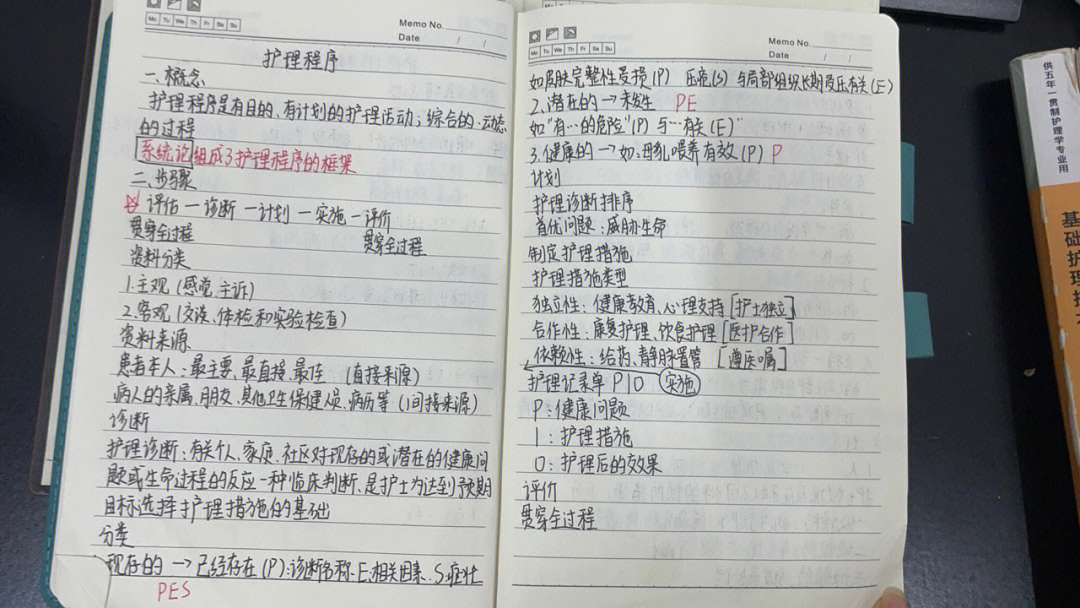 Mo Tu We Th Fr Sa Su
Memo No.
Date / /
护理程序
一、概念
护理程序是有目的、有计划的护理活动；综合的、动态
的过程
系统论组成了护理程序的框架
二、步骤
评估—诊断—计划—实施—评价
贯穿全过程 贯穿全过程
资料分类
1.主观（感觉、主诉）
2.客观（交谈、体检和实验检查）
资料来源
患者本人：最主要、最直接、最佳 （直接来源）
病人的亲属、朋友、其他卫生保健人员、病历等（间接来源）
诊断
护理诊断：有关个人、家庭、社区对现存的或潜在的健康问
题或生命过程的反应一种临床判断、是护士为达到预期
目标选择护理措施的基础
分类
现存的 → 已经存在（P）：诊断名称、E：相关因素、S：症状
PES
Mo Tu We Th Fr Sa Su
Memo No.
Date / /
如皮肤完整性受损（P） 压疮（S） 与局部组织长期受压有关（E）
2.潜在的 → 未发生 PE
如“有…的危险”（P）与…有关（E）”
3.健康的 → 如：母乳喂养有效（P） P
计划
护理诊断排序
首优问题：威胁生命
制定护理措施
护理措施类型
独立性：健康教育、心理支持［护士独立］
合作性：康复护理、饮食护理［医护合作］
依赖性：给药、静脉置管 ［遵医嘱］
护理记录单 PIO 实施
P：健康问题
I：护理措施
O：护理后的效果
评价
贯穿全过程
供五年一贯制护理学专业用
基础护理技